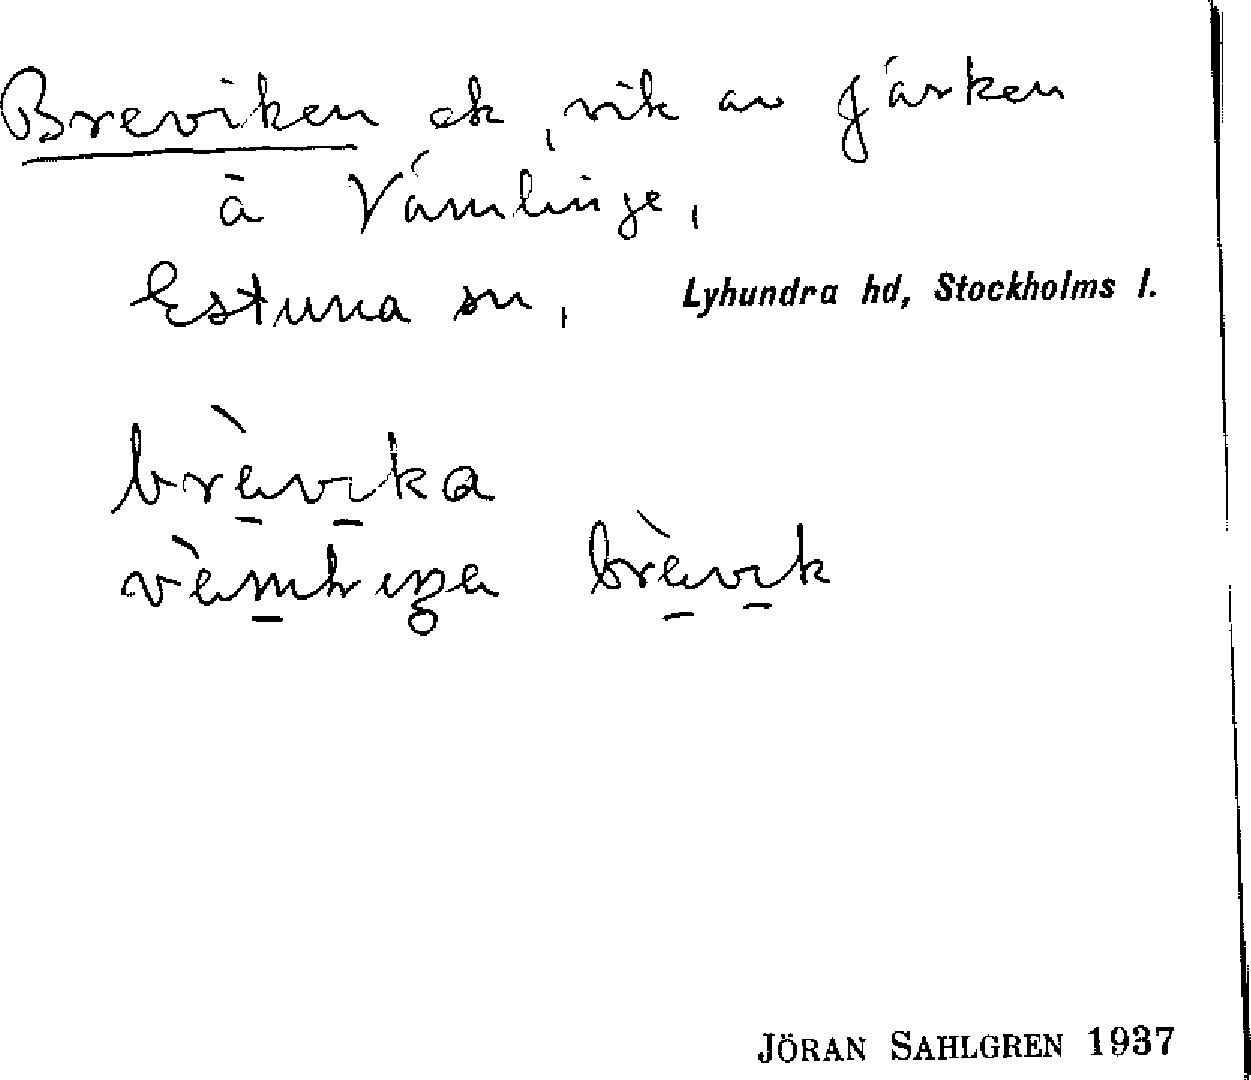 Breviken ek, vik av Järken
å Vämlinge,
Estuna sn, Lyhundra hd, Stockholms l.
brèvika
vèmliŋe brèvik
JÖRAN SAHLGREN 1937